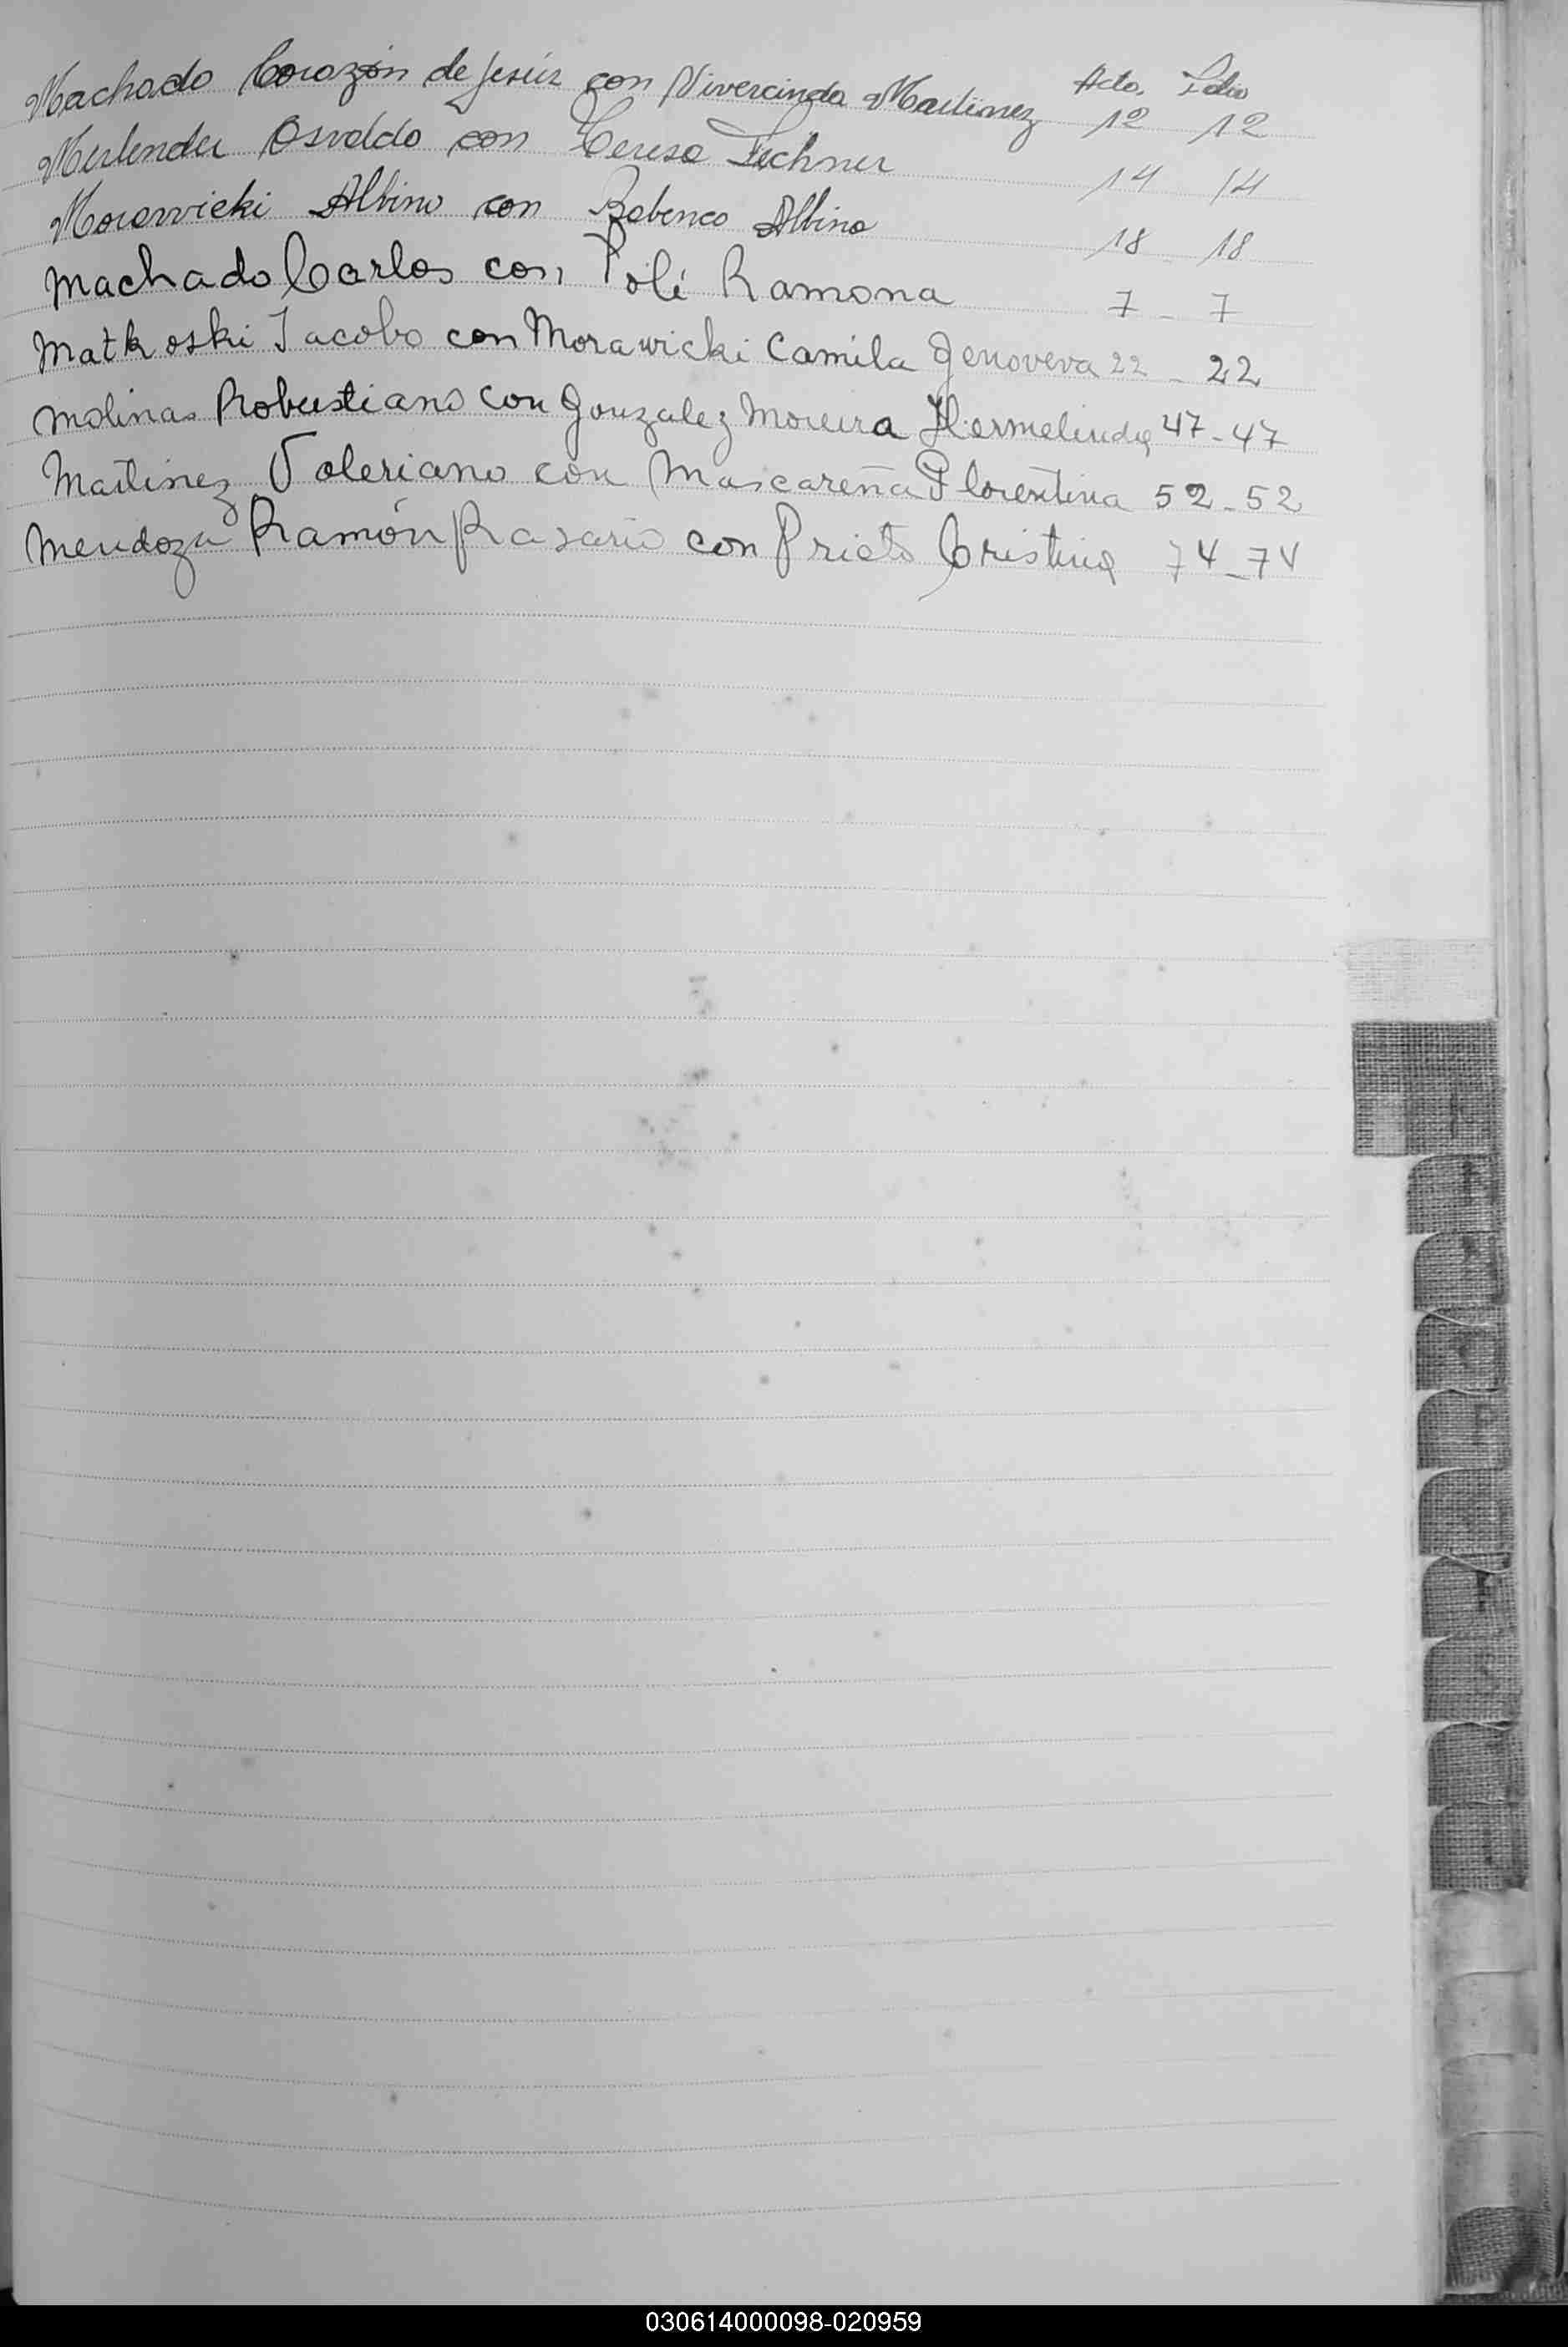 Acta. Folio
Machado Corazón de Jesús con Nivercinda Martinez 12 12
Merlender Osvaldo con Teresa Fechner 14 14
Morawicki Albino con Babenco Albina 18 18
Machado Carlos con Polí Ramona 7 - 7
Matkoski Jacobo con Morawicki Camila Genoveva 22 - 22
Molinas Robustiano con Gonzalez Moreira Hermelinda 47 - 47
Martinez Valeriano con Mascareña Florentina 52 - 52
Mendoza Ramón Rasario con Prieto Cristina 74 - 74
030614000098-020959